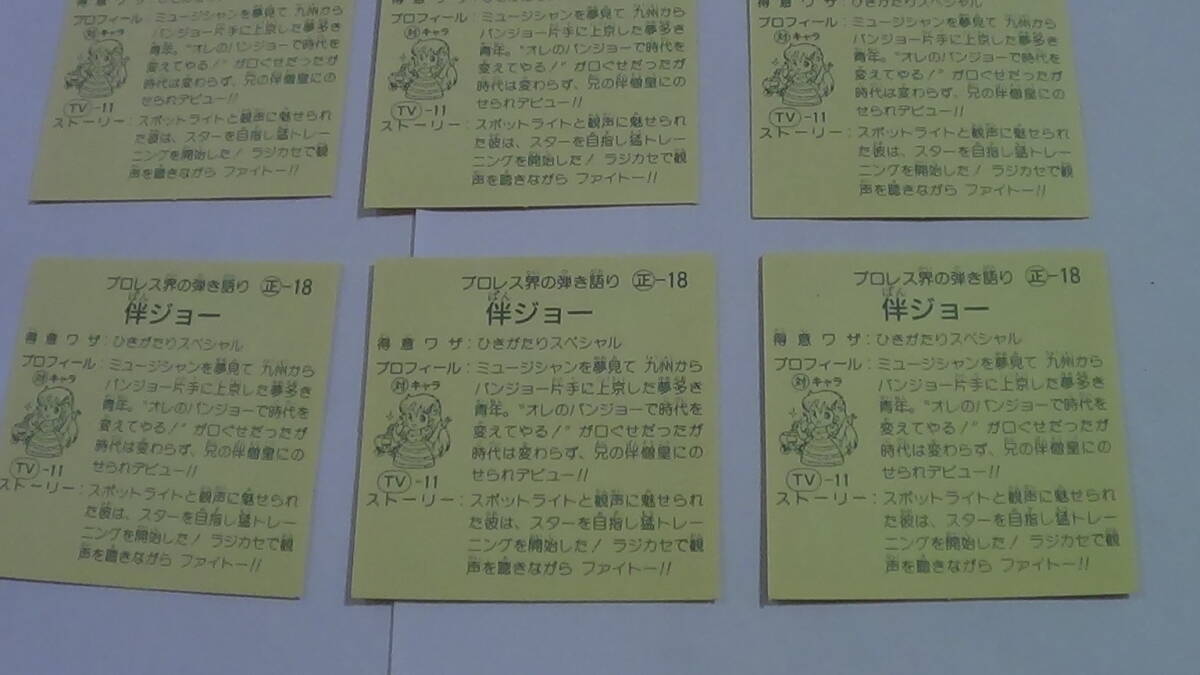 得意ワザ：ひきがたりスペシャル
プロフィール：ミュージシャンを夢見て 九州から
バンジョー片手に上京した夢多き
対 キャラ
青年。"オレのバンジョーで時代を
変えてやる！"が口ぐせだったが
時代は変わらず、兄の伴僧皇にの
せられデビュー!!
TV-11
ストーリー：スポットライトと観声に魅せられ
た彼は、スターを目指し猛トレー
ニングを開始した！ ラジカセで観
声を聴きながら ファイトー!!
得意ワザ：ひきがたりスペシャル
プロフィール：ミュージシャンを夢見て 九州から
バンジョー片手に上京した夢多き
対 キャラ
青年。"オレのバンジョーで時代を
変えてやる！"が口ぐせだったが
時代は変わらず、兄の伴僧皇にの
せられデビュー!!
TV-11
ストーリー：スポットライトと観声に魅せられ
た彼は、スターを目指し猛トレー
ニングを開始した！ ラジカセで観
声を聴きながら ファイトー!!
得意ワザ：ひきがたりスペシャル
プロフィール：ミュージシャンを夢見て 九州から
バンジョー片手に上京した夢多き
対 キャラ
青年。"オレのバンジョーで時代を
変えてやる！"が口ぐせだったが
時代は変わらず、兄の伴僧皇にの
せられデビュー!!
TV-11
ストーリー：スポットライトと観声に魅せられ
た彼は、スターを目指し猛トレー
ニングを開始した！ ラジカセで観
声を聴きながら ファイトー!!
プロレス界の弾き語り 正-18
ばん
伴ジョー
得意ワザ：ひきがたりスペシャル
プロフィール：ミュージシャンを夢見て 九州から
バンジョー片手に上京した夢多き
対 キャラ
青年。"オレのバンジョーで時代を
変えてやる！"が口ぐせだったが
時代は変わらず、兄の伴僧皇にの
せられデビュー!!
TV-11
ストーリー：スポットライトと観声に魅せられ
た彼は、スターを目指し猛トレー
ニングを開始した！ ラジカセで観
声を聴きながら ファイトー!!
プロレス界の弾き語り 正-18
ばん
伴ジョー
得意ワザ：ひきがたりスペシャル
プロフィール：ミュージシャンを夢見て 九州から
バンジョー片手に上京した夢多き
対 キャラ
青年。"オレのバンジョーで時代を
変えてやる！"が口ぐせだったが
時代は変わらず、兄の伴僧皇にの
せられデビュー!!
TV-11
ストーリー：スポットライトと観声に魅せられ
た彼は、スターを目指し猛トレー
ニングを開始した！ ラジカセで観
声を聴きながら ファイトー!!
プロレス界の弾き語り 正-18
ばん
伴ジョー
得意ワザ：ひきがたりスペシャル
プロフィール：ミュージシャンを夢見て 九州から
バンジョー片手に上京した夢多き
対 キャラ
青年。"オレのバンジョーで時代を
変えてやる！"が口ぐせだったが
時代は変わらず、兄の伴僧皇にの
せられデビュー!!
TV-11
ストーリー：スポットライトと観声に魅せられ
た彼は、スターを目指し猛トレー
ニングを開始した！ ラジカセで観
声を聴きながら ファイトー!!